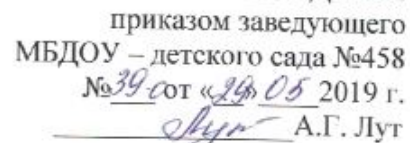 приказом заведующего
МБДОУ – детского сада №458
№39-о от «29» 05 2019 г.
А.Г. Лут